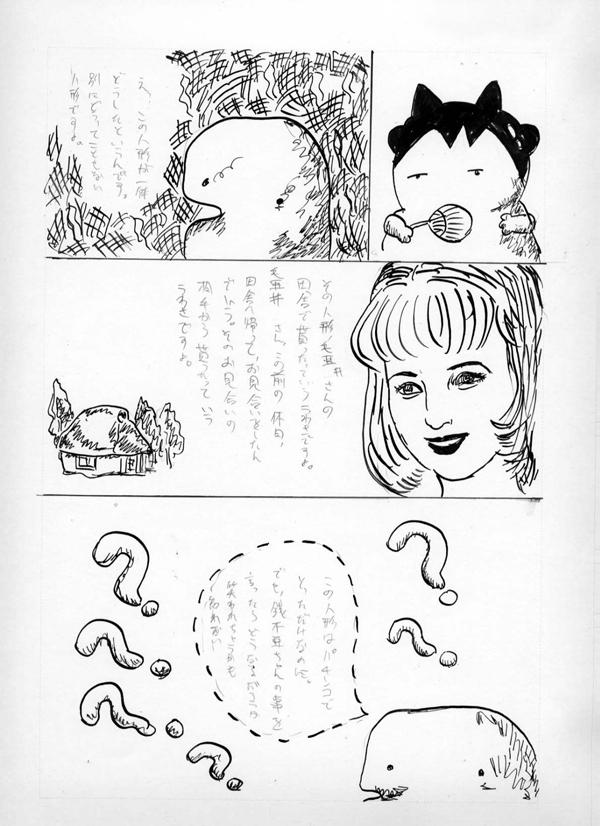 え、この人形が一体
どうしたというんです。
別にどうってことない
人形ですよ。
その人形、毛亜井さんの
田舎で貰ったっていううわさですよ。
毛亜井さん、この前の休日、
田舎へ帰って、お見合いをしたん
でしょう。そのお見合いの
相手から貰ったっていう
うわさですよ。
この人形はパチンコで
とっただけなのに。
でも、銭木亜ちゃんの事を
言ったらどうなるだろうか
笑われちゃうかも
しれない